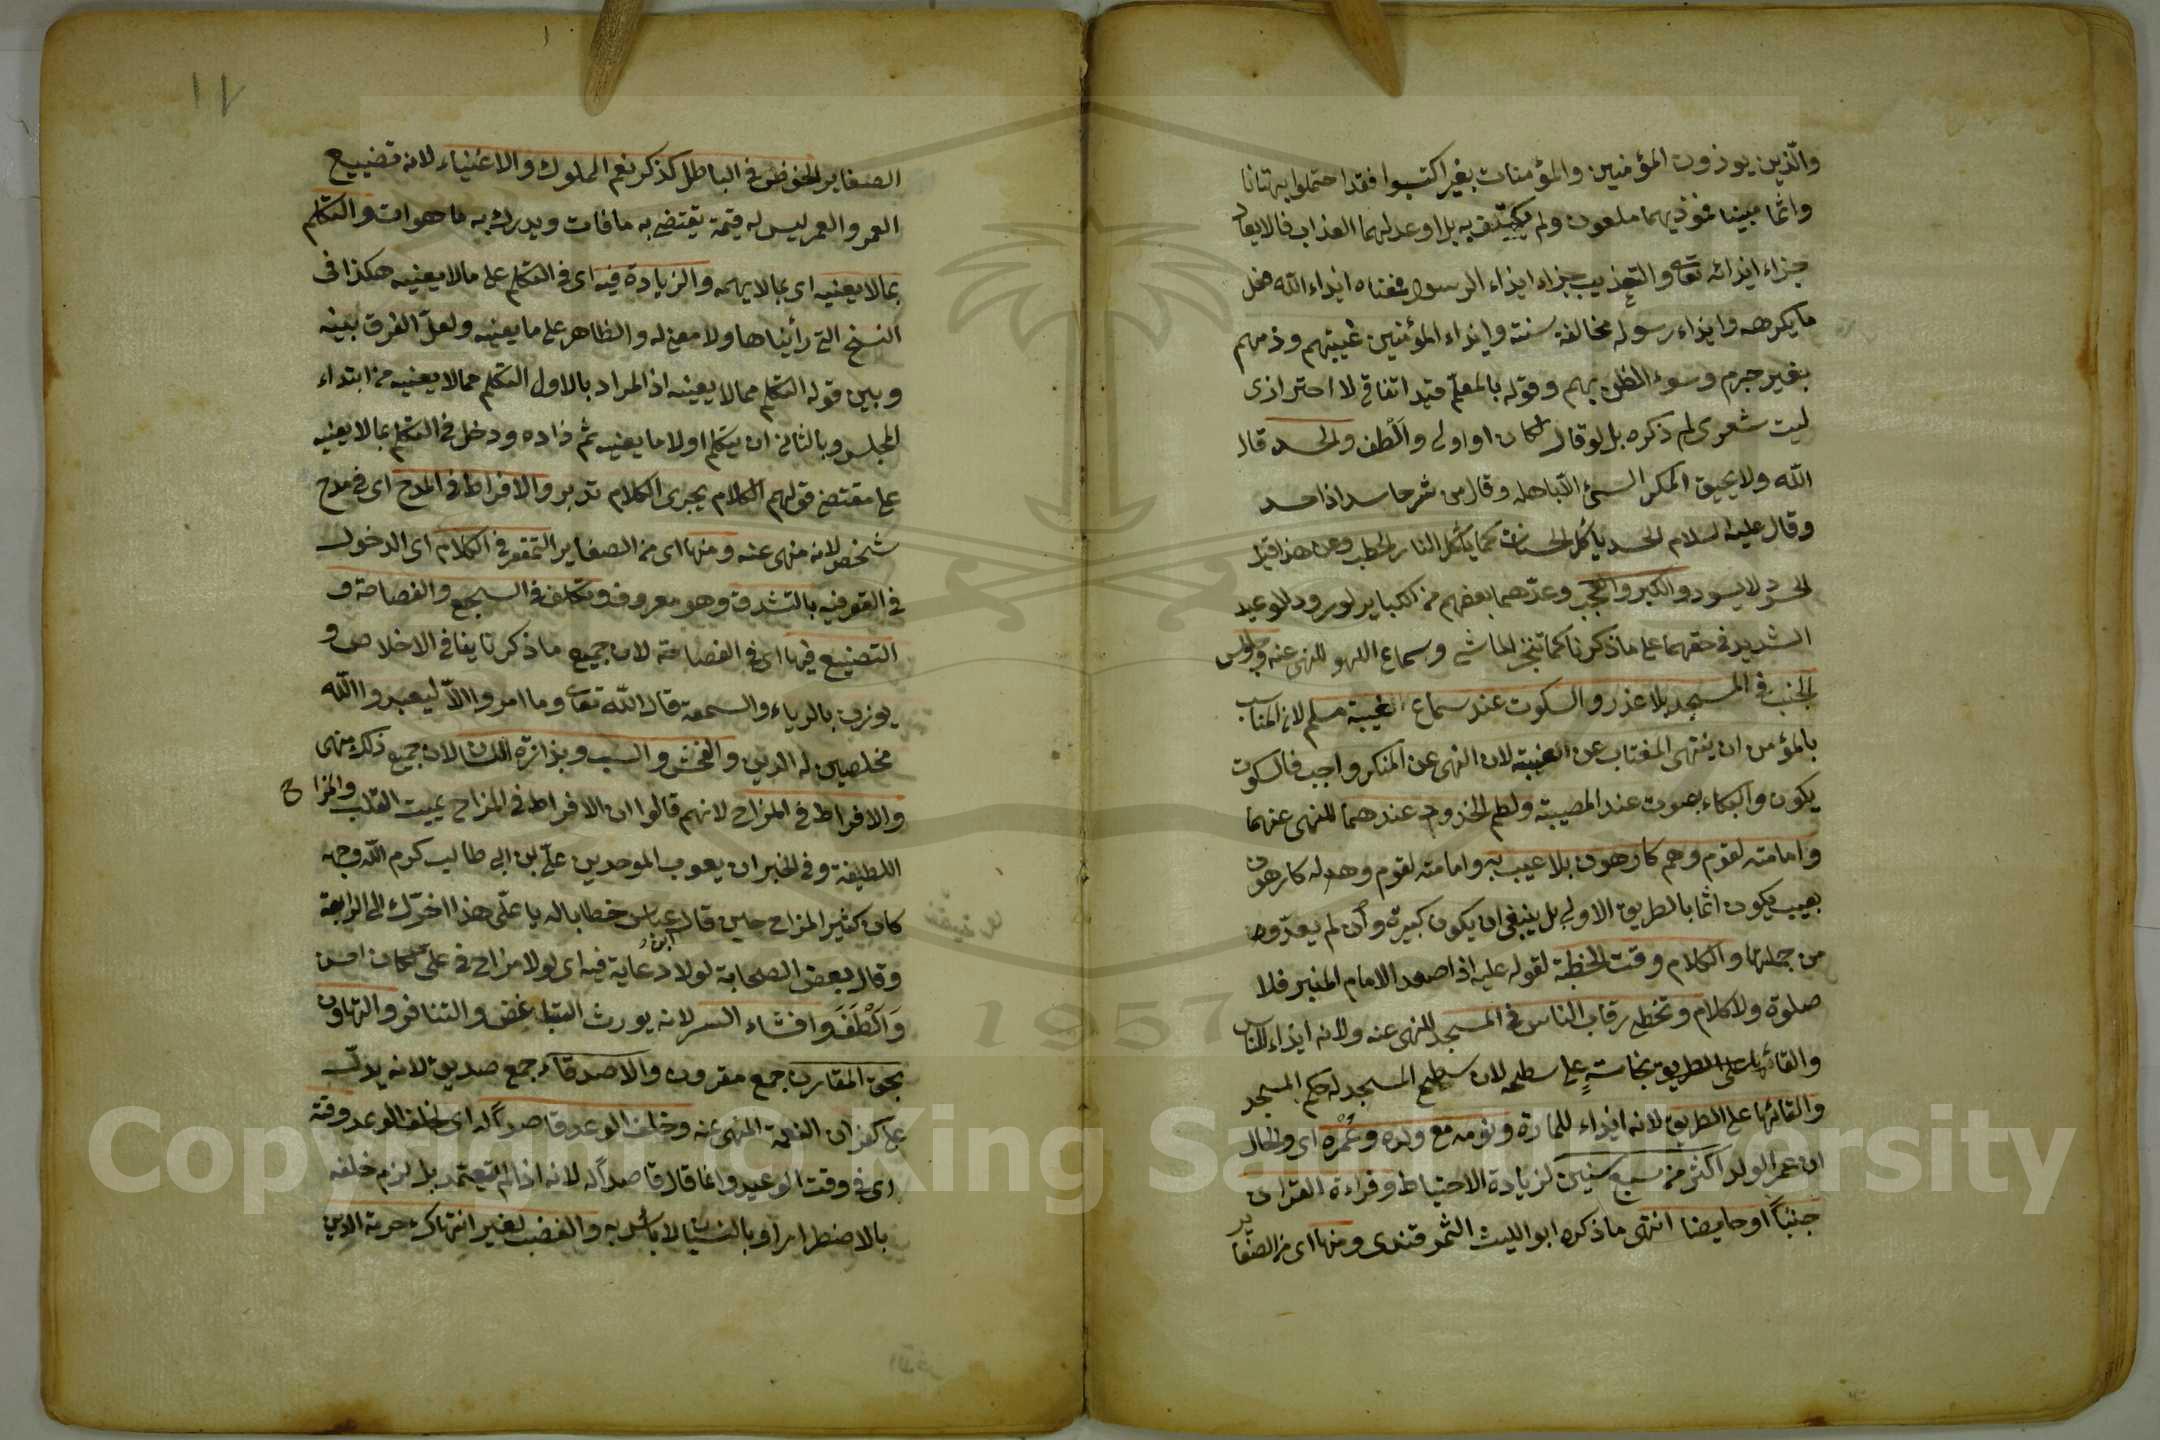 والذين يوذون المؤمنين والمؤمنات بغير اكتسبوا فقد احتملوا بهتانا
واثما مبينا فموذيهما ملعون ولم يكتف به بل اوعد لهما العذاب فالايعاد
جزاء ايذائه تعالى والتعذيب جزاء ايذاء الرسول فمعناه ايذاء الله فعل
ما يكرهه وايذاء رسوله مخالفة سنته وايذاء المؤمنين غيبتهم وذمهم
بغير جرم وسوء الظن بهم وقوله بالمعلم قيد اتفاقي لا احترازى
ليت شعرى لم ذكره بل لو قال لكان اولى وألطف والحسد قال
الله ولا يحيق المكر السيئ الا باهله وقال من شر حاسد اذا حسد
وقال عليه السلام الحسد يأكل الحسنات كما يأكل النار الحطب وعن هذا قيل
الحسود لا يسود والكبر والعجب وعدهما بعضهم من الكبائر لورود الوعيد
الشديد في حقهما على ما ذكرنا كما تبختر الماشي وسماع اللهو للنهى عنه وجلوس
الجنب في المسجد بلا عذر والسكوت عند سماع الغيبة مسلم لان المناسب
بالمؤمن ان ينتهى المغتاب عن الغيبة لان النهى عن المنكر واجب فالسكوت
يكون والبكاء بصوت عند المصيبة ولطم الخدود عندهما للنهى عنهما
وامامته لقوم وهم كارهون بلا عيب به وامامته لقوم وهم له كارهون
بعيب يكون اثما بالطريق الاولى بل ينبغى ان يكون كبيرة وأن لم يعدوه
من جملتها والكلام وقت الخطبة لقوله عليه اذا صعد الامام المنبر فلا
صلوة ولا كلام وتخطى رقاب الناس في المسجد للنهى عنه ولانه ايذاء للناس
والقاء نجاسة على سطحه لان سطح المسجد له حكم المسجد
والقائها على الطريق لانه ايذاء للمارة ونومه مع ولده وعمره اى والحال
ان عمر الولد اكثر من سبع سنين لزيادة الاحتياط وقراءة القران
جنبا او حايضا انتهى ما ذكره ابو الليث الثمرقندى ومنها اى من الصغاير
١٧
الصغاير الخوض في الباطل كذكر نعم الملوك والاغنياء لانه تضييع
العمر والعمر ليس له قيمة يقتضى به ما فات ويدرك به ما هوات والتكلم
بما لا يعنيه اى بما لا يهمه والزيادة فيه اى في التكلم على ما لا يعنيه هكذا فى
النسخ التي رأيناها ولا معنى له والظاهر على ما يعنيه ولعل الفرق بينه
وبين قوله التكلم مما لا يعينه اذ المراد بالاول التكلم مما لا يعنيه من ابتداء
المجلس وبالثاني ان يتكلم اولا ما يعنيه ثم زاده ودخل في التكلم بما لا يعنيه
على مقتضى قولهم الكلام يجرى الكلام تدبر والافراط في المدح اى في مدح
شخص لانه منهى عنه ومنها اى من الصغاير التقعر في الكلام اى الدخول
في القعر فيه بالتشدق وهو معروف وتكلف في السجع والفصاحة و
التصنيع فيها اى في الفصاحة لان جميع ما ذكر تاينافي الاخلاص و
يوزن بالرياء والسمعة قال الله تعالى وما امروا الا ليعبدوا الله
مخلصين له الدين والفحش والسب وبذاءة اللسان لان جميع ذلك منهى
والافراط في المزاح لانهم قالوا ان الافراط في المزاح يميت القلب والمزاح
اللطيفة وفى الخبر ان يعوب الموحدين على بن ابى طالب كرم الله وجهه
كان كثير المزاح حين قال ابن عباس خطابا له يا على هذا اخرك الى الرابعة
وقال بعض الصحابة لولا دعابة فيه اى لولا مزاح في على لكان احسن
وألطف وافشاء السر لانه يورث التباغض والتنافر والتهاون
بحق المقارن جمع مقرون والاصدقاء جمع صديق لانه يدل
على كفران النعمة المنهى عنه وخلف الوعد قاصدا له اى لخلف الوعد وقته
اى في وقت الوعيد وانما قال قاصدا له لانه اذا لم يتعمد بل لزم خلفه
بالاضطرار او بالنسيان لا بأس به والغضب لغير انتهاك حرمة الدين
Copyright © King Saud University
1957